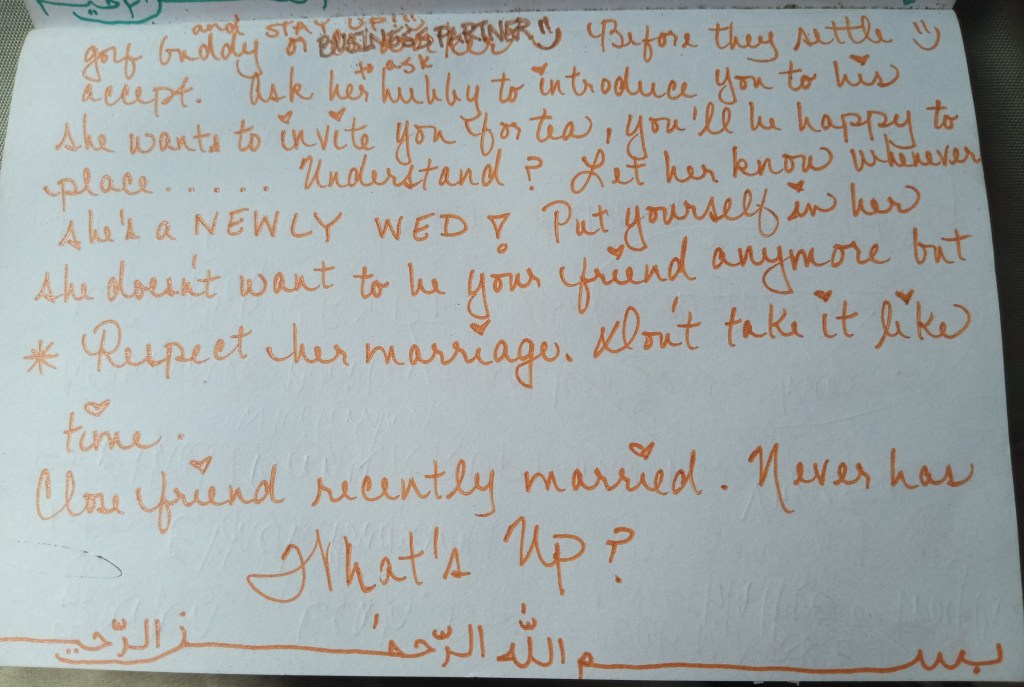 بسم اللّه الرّحمن الرّحيم
What's Up?
Close friend recently married. Never has
time.
* Respect her marriage. Don't take it like
she doesn't want to be your friend anymore but
she's a NEWLY WED! Put yourself in her
place..... Understand? Let her know whenever
she wants to invite you for tea, you'll be happy to
accept. Ask her to ask hubby to introduce you to his
golf buddy or BUSINESS PARTNER :) Before they settle :)
and STAY UP!!! :)